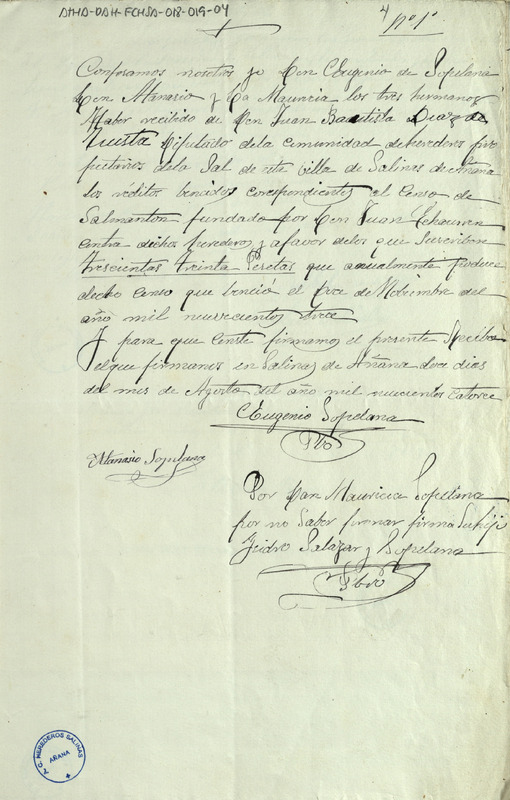 AMA-DAH-FCHSA-018-019-04
4 Nº 1º
Confesamos nosotros yo Don Eugenio de Sopelana
Don Atanasio y Da Mauricia los tres hermanos
Haber recibido de Don Juan Bautista Diaz de
Tuesta Diputado de la Comunidad de herederos pro
pietarios de la Sal de esta villa de Salinas de Añana
los réditos bencidos correspondientes al Censo de
Salmanton fundado por Don Juan
contra dichos herederos y a favor de los que Suscriben
trescientas treinta Pesetas que anualmente produce
dicho Censo que benció el de Nobiembre del
año mil nuevecientos trece
Y para que conste firmamos el presente Recibo
el que firmamos en Salinas de Añana doce dias
del mes de Agosto del año mil nuecientos Catorce
Eugenio Sopelana
Pbro
Atanasio Sopelana
Por Dan Mauricia Sopelana
por no Saber firmar firma Su hijo
Isidro Salazar y Sopelana
Pbro
C. HEREDEROS SALINAS
AÑANA